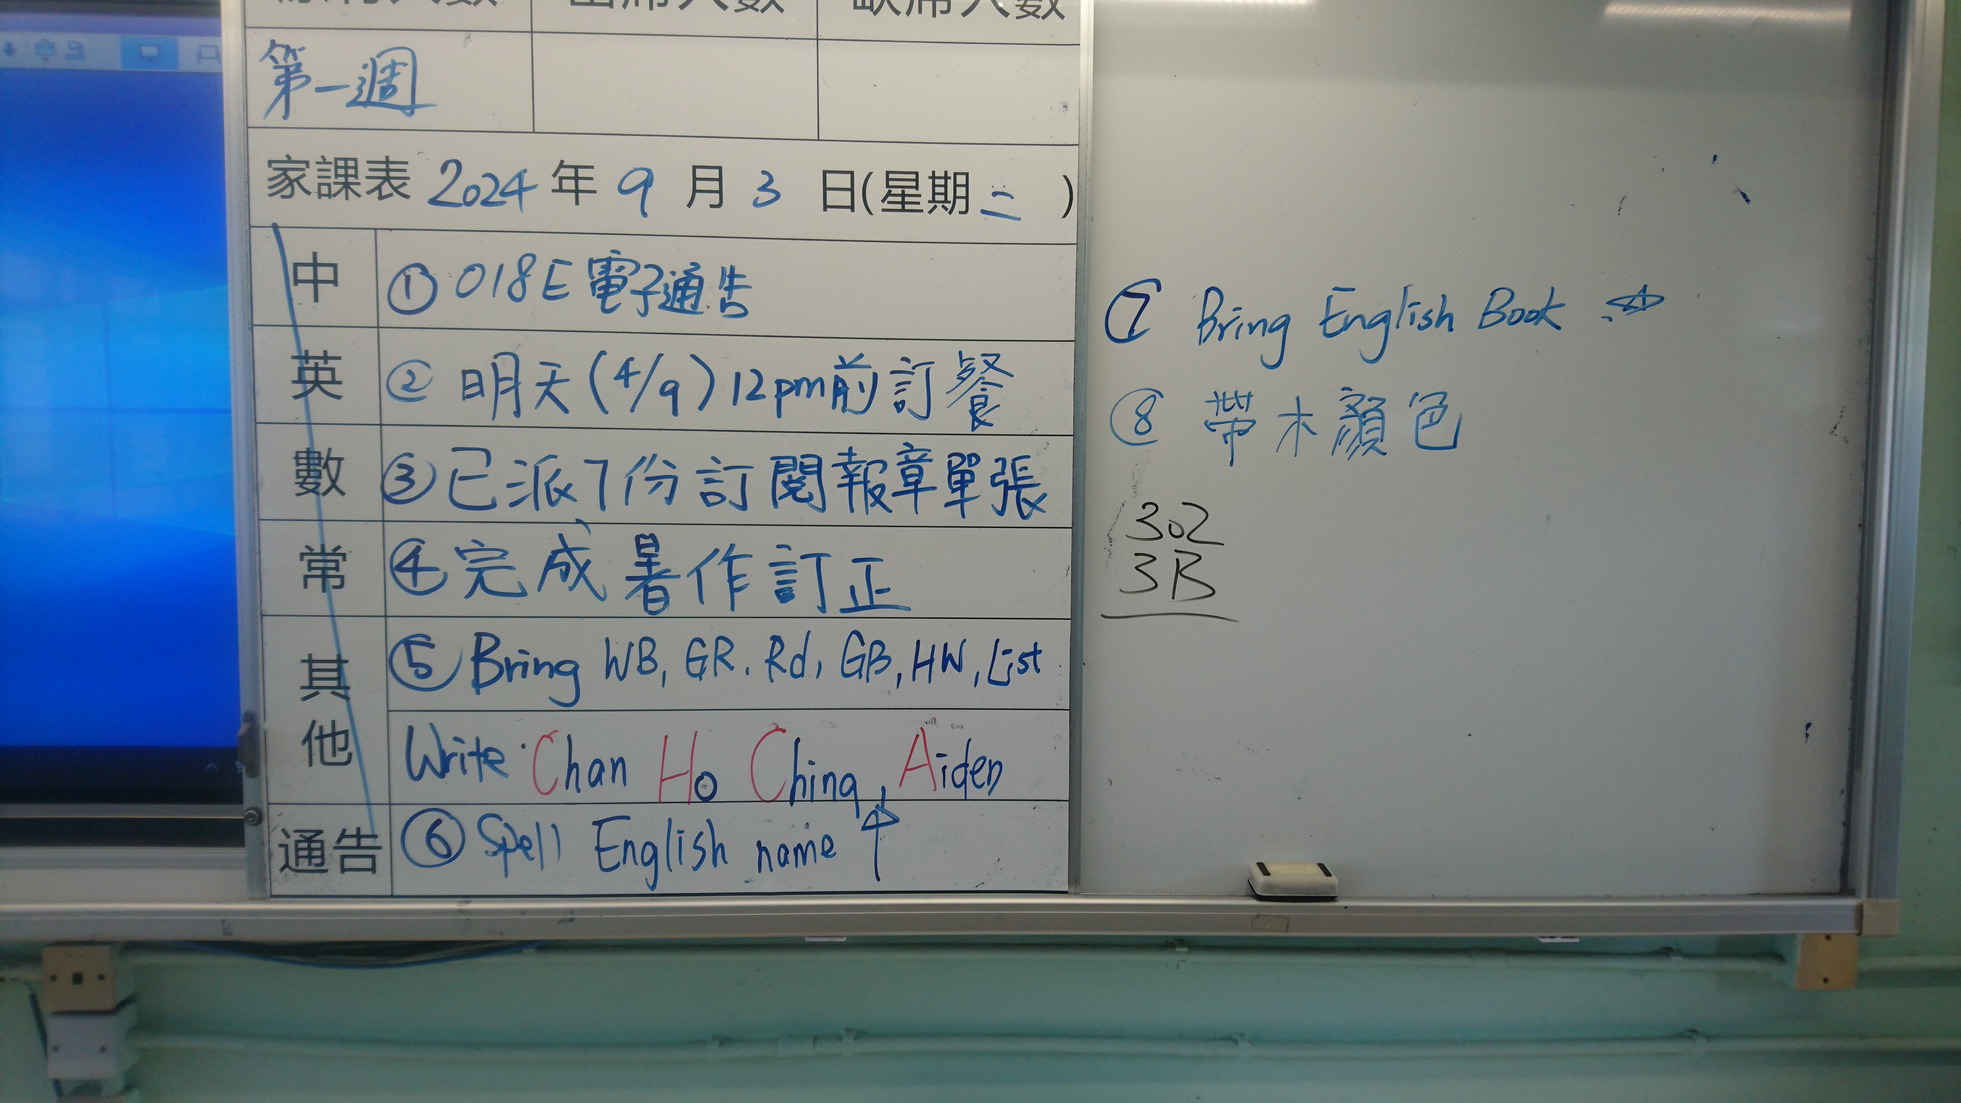 原有人數 出席人數 缺席人數
第一週
家課表 2024 年 9 月 3 日(星期二 )
中 ① 018E 電子通告
英 ② 明天(4/9)12pm前訂餐
數 ③ 已派7份訂閱報章單張
常 ④ 完成暑作訂正
其他 ⑤ Bring WB, GR. Rd, GB, HW, List
Write Chan Ho Ching, Aiden
通告 ⑥ Spell English name ↑
⑦ Bring English Book ☆
⑧ 帶木顏色
302
3B